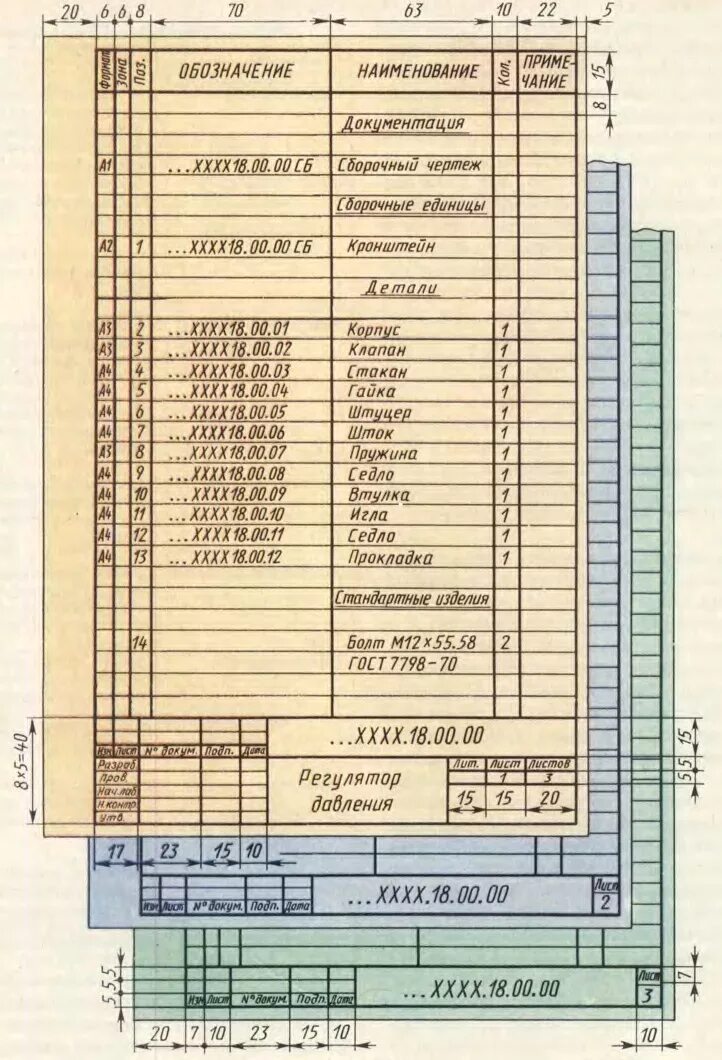 20 6 6 8 70 63 10 22 5
Формат Зона Поз. ОБОЗНАЧЕНИЕ НАИМЕНОВАНИЕ Кол. ПРИМЕ-
ЧАНИЕ
15
8
Документация
А1 ...XXXX18.00.00 СБ Сборочный чертеж
Сборочные единицы
А2 1 ...XXXX18.00.00 СБ Кронштейн
Детали
А3 2 ...XXXX18.00.01 Корпус 1
А3 3 ...XXXX18.00.02 Клапан 1
А4 4 ...XXXX18.00.03 Стакан 1
А4 5 ...XXXX18.00.04 Гайка 1
А4 6 ...XXXX18.00.05 Штуцер 1
А4 7 ...XXXX18.00.06 Шток 1
А3 8 ...XXXX18.00.07 Пружина 1
А4 9 ...XXXX18.00.08 Седло 1
А4 10 ...XXXX18.00.09 Втулка 1
А4 11 ...XXXX18.00.10 Игла 1
А4 12 ...XXXX18.00.11 Седло 1
А4 13 ...XXXX18.00.12 Прокладка 1
Стандартные изделия
14 Болт М12×55.58 2
ГОСТ 7798-70
...XXXX.18.00.00
15
Изм Лист № докум. Подп. Дата
8×5=40
Разраб. Лит. Лист Листов
5,5
Пров. 1 3
Регулятор
давления
Нач.лаб.
Н.контр.
Утв.
15 15 20
17 23 15 10
...XXXX.18.00.00
Лист
2
Изм Лист № докум. Подп. Дата
5,5,5
...XXXX.18.00.00
Лист
3
7
Изм Лист № докум. Подп. Дата
20 7 10 23 15 10 10